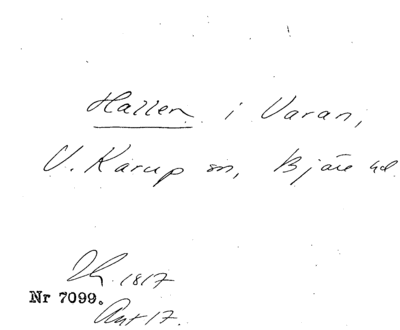 Hallen i Varan,
V. Karup sn, Bjäre hd
1817
Nr 7099.
Ant 17.